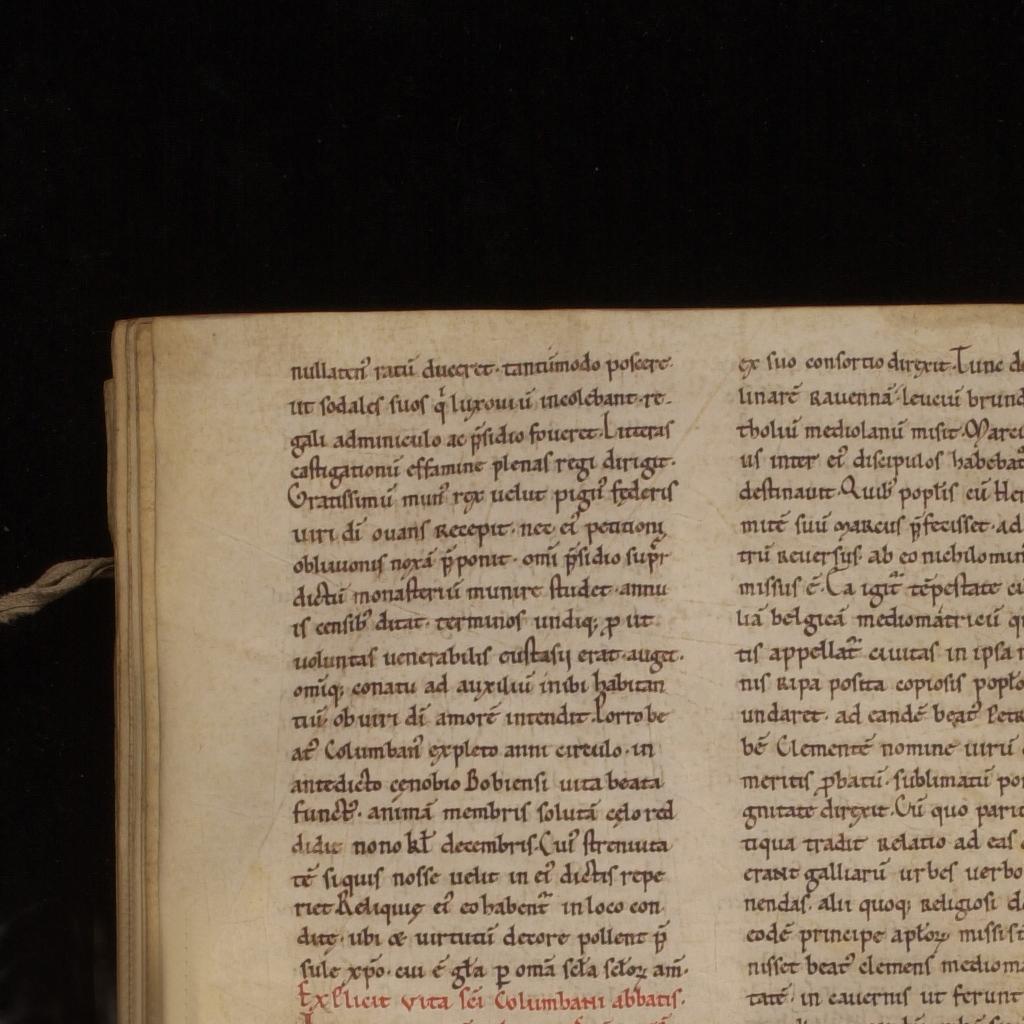 nullaten᾽ ratū duceret· tantūmodo poscere·
ut sodales suos q̇ luxouiū incolebant· re-
gali adminiculo ac p̄sidio foueret· Litteras
castigationū effamine plenas regi dirigit·
Gratissimū mun᾽ rex uelut pign᾽ fęderis
uiri dī ouans recepit· nec ei᾽ petitionē
obliuionis noxā p̄ponit· omī p̄sidio sup̄r
dictū monasteriū munire studet· annu
is censib᾽ ditat· terminos undiq; ꝓ ut
uoluntas uenerabilis eustasii erat· auget·
omīq; conatu ad auxiliū inibi habitan
tiū· ob uiri dī amorē intendit· Porro be
at᾽ Columban᾽ expleto anni circulo· in
antedicto cęnobio Bobiensi uita beata
funct᾽· animā membris solutā cęlo red
didit nono kł decembris· Cui᾽ strenuita
tē siquis nosse uelit in ei᾽ dictis repe
riet Reliquię ei᾽ eo habent̄ in loco con
ditę· ubi & uirtutū decore pollent p̄
sule xp̄o· cui ē gła ꝑ omā scła scłoꝝ am̄·
Explicit vita sc̄i Columbani abbatis·
ex suo consortio direxit· Tunc
linarē Rauennā· leuciū
tholūi mediolanū misit·
us inter ei᾽ discipulos
destinauit· Quib᾽ popłis eū
mitē suū marcus p̄fecisset· ad
trū reuersus· ab eo
missus ē· Ea igit̄ tēpestate
liā belgicā mediomatricū
tis appellat̄ ciuitas in ipsa
nis ripa posita copiosis
undaret· ad eandē beat᾽
bē Clementē nomine uirū
meritis ꝓbatū· sublimatū
gnitate direxit· Cū quo
tiqua tradit relatio ad eas
erant galliarū urbes
nendas· alii quoq; religiosi
eodē principe apłoꝝ
nisset beat᾽ clemens
tatē· in cauernis ut ferunt